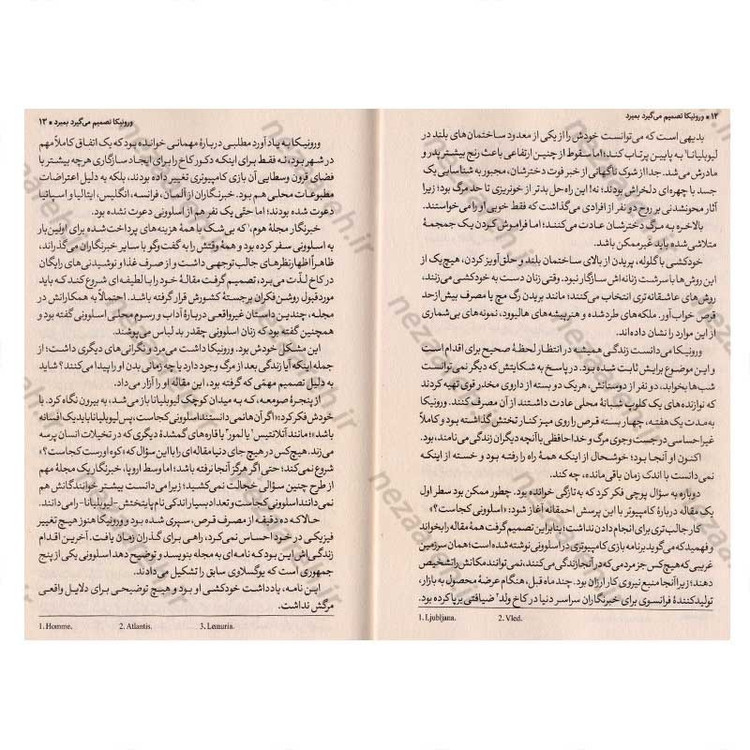 ۱۲ * ورونیکا تصمیم می‌گیرد بمیرد
بدیهی است که می‌توانست خودش را از یکی از معدود ساختمان‌های بلند در
لیوبلیانا¹ به پایین پرتاب کند؛ اما سقوط از چنین ارتفاعی باعث رنج بیشتر پدر و
مادرش می‌شد. جدا از شوک ناگهانی از خبر فوت دخترشان، مجبور به شناسایی یک
جسد با چهره‌ای دلخراش بودند؛ نه! این راه‌حل بدتر از خونریزی تا حد مرگ بود؛ زیرا
آثار محونشدنی بر روح دو نفر از افرادی می‌گذاشت که فقط خوبی او را می‌خواستند.
بالاخره به مرگ دخترشان عادت می‌کنند؛ اما فراموش کردن یک جمجمۀ
متلاشی شده باید غیرممکن باشد.
خودکشی با گلوله، پریدن از بالای ساختمان بلند و حلق‌آویز کردن، هیچ‌یک از
این روش‌ها با سرشت زنانه‌اش سازگار نبود. وقتی زنان دست به خودکشی می‌زنند،
روش‌های عاشقانه‌تری انتخاب می‌کنند؛ مانند بریدن رگ مچ یا مصرف بیش‌ازحد
قرص خواب‌آور. ملکه‌های طردشده و هنرپیشه‌های هالیوود، نمونه‌های بی‌شماری
از این موارد را نشان داده‌اند.
ورونیکا می‌دانست زندگی همیشه در انتظار لحظۀ صحیح برای اقدام است
و این موضوع برایش ثابت شده بود. در پاسخ به شکایتش که دیگر نمی‌توانست
شب‌ها بخوابد، دو نفر از دوستانش، هریک دو بسته از داروی مخدر قوی تهیه کردند
که نوازنده‌های یک کلوپ شبانۀ محلی عادت داشتند از آن مصرف کنند. ورونیکا
به مدت یک هفته، چهار بسته قرص را روی میز کنار تختش گذاشته بود و کاملاً
غیراحساسی در جست‌وجوی مرگ و خداحافظی با آنچه دیگران زندگی می‌نامند، بود.
اکنون او آنجا بود؛ خوشحال از اینکه همۀ راه را رفته بود و خسته از اینکه
نمی‌دانست با اندک زمان باقی‌مانده، چه کند.
دوباره به سؤال پوچی فکر کرد که به‌تازگی خوانده بود. چطور ممکن بود سطر اول
یک مقاله دربارۀ کامپیوتر با این پرسش احمقانه آغاز شود: «اسلوونی کجاست؟»
کار جالب‌تری برای انجام دادن نداشت؛ بنابراین تصمیم گرفت همۀ مقاله را بخواند
و فهمید که می‌گوید برنامه بازی کامپیوتری در اسلوونی نوشته شده است؛ همان سرزمین
غریبی که هیچ‌کس جز مردمی که در آنجا زندگی می‌کنند، نمی‌توانند مکانش را تشخیص
دهند؛ زیرا آنجا منبع نیروی کار ارزان بود. چند ماه قبل، هنگام عرضۀ محصول به بازار،
تولیدکنندۀ فرانسوی برای خبرنگاران سراسر دنیا در کاخ ولد² ضیافتی برپا کرده بود.
1. Ljubljana. 2. Vled.
ورونیکا تصمیم می‌گیرد بمیرد * ۱۳
ورونیکا به یاد آورد مطلبی دربارۀ مهمانی خوانده بود که یک اتفاق کاملاً مهم
در شهر بود، نه فقط برای اینکه دکور کاخ را برای ایجاد سازگاری هرچه بیشتر با
فضای قرون وسطایی آن بازی کامپیوتری تغییر داده بودند، بلکه به دلیل اعتراضات
مطبوعات محلی هم بود. خبرنگاران از آلمان، فرانسه، انگلیس، ایتالیا و اسپانیا
دعوت شده بودند؛ اما حتی یک نفر هم از اسلوونی دعوت نشده بود.
خبرنگار مجلۀ هوم،¹ که بی‌شک با همۀ هزینه‌های پرداخت‌شده برای اولین‌بار
به اسلوونی سفر کرده بود و همۀ وقتش را به گفت‌وگو با سایر خبرنگاران می‌گذراند،
ظاهراً اظهارنظرهای جالب توجهی داشت و از صرف غذا و نوشیدنی‌های رایگان
در کاخ لذّت می‌برد، تصمیم گرفت مقالۀ خود را با لطیفه‌ای شروع کند که باید
موردقبول روشن‌فکران برجستۀ کشورش قرار گرفته باشد. احتمالاً به همکارانش در
مجله، چندین داستان غیرواقعی دربارۀ آداب و رسوم محلی اسلوونی گفته بود و
همچنین گفته بود که زنان اسلوونی چقدر بد لباس می‌پوشند.
این مشکل خودش بود. ورونیکا داشت می‌مرد و نگرانی‌های دیگری داشت؛ از
جمله اینکه آیا زندگی بعد از مرگ وجود دارد یا چه زمانی بدن او را پیدا می‌کنند؟ شاید
به دلیل تصمیم مهمّی که گرفته بود، این مقاله او را آزار می‌داد.
از پنجرۀ صومعه، که به میدان کوچک لیوبلیانا باز می‌شد، به بیرون نگاه کرد. با
خودش فکر کرد: «اگر آن‌ها نمی‌دانستند اسلوونی کجاست، پس لیوبلیانا باید یک افسانه
باشد»؛ مانند آتلانتیس² یا لمور³ یا قاره‌های گمشدۀ دیگری که در تخیلات انسان پرسه
می‌زند. هیچ‌کس در هیچ جای دنیا مقاله‌ای را با این سؤال که «کوه اورست کجاست؟»
شروع نمی‌کند؛ حتی اگر هرگز آنجا نرفته باشد؛ اما وسط اروپا، خبرنگار یک مجلۀ مهم
از طرح چنین سؤالی خجالت نمی‌کشید؛ زیرا می‌دانست بیشتر خوانندگانش هم
نمی‌دانند اسلوونی کجاست و تعداد بسیار اندکی نام پایتختش - لیوبلیانا - را می‌دانند.
حالا که ده دقیقه از مصرف قرص، سپری شده بود و ورونیکا هنوز هیچ تغییر
فیزیکی در خود احساس نمی‌کرد، راهی برای گذران زمان یافت. آخرین اقدام
زندگی‌اش این بود که نامه‌ای به مجله بنویسد و توضیح دهد اسلوونی یکی از پنج
جمهوری است که یوگسلاوی سابق را تشکیل می‌دادند.
این نامه، یادداشت خودکشی او بود و هیچ توضیحی برای دلایل واقعی
مرگش نداشت.
1. Homme. 2. Atlantis. 3. Lemuria.
nezaaleh.ir